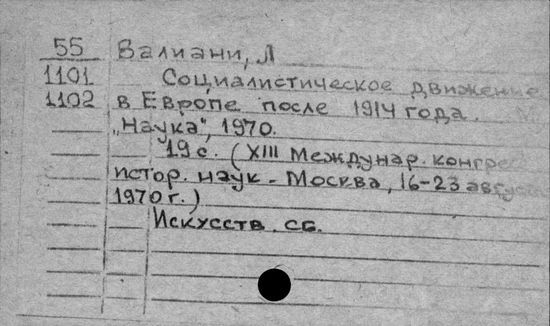 55 Валиани, Л
1101 Социалистическое движение
1102 в Европе после 1914 года. М
„Наука", 1970.
19 с. (XIII Междунар. конгрес
истор. наук - Москва, 16-23 августа
1970 г.)
Искусств. сб.